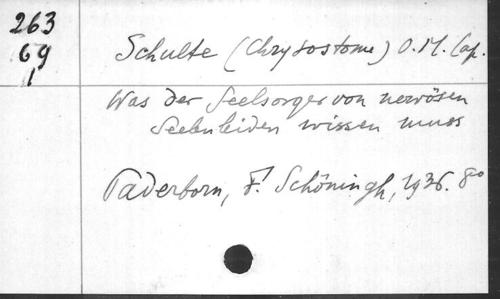 263
69
1
Schulte (Chrysostome) O.M. Cap.
Was der Seelsorger von nervösen
Seelenleiden wissen muss
Paderborn, F. Schöningh, 1936. 8º